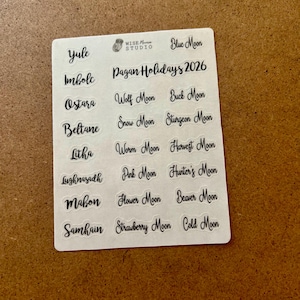 Yule
WISE Planner
STUDIO
Blue Moon
Imbolc
Pagan Holidays 2026
Ostara
Wolf Moon
Buck Moon
Beltane
Snow Moon
Sturgeon Moon
Litha
Worm Moon
Harvest Moon
Lughnasadh
Pink Moon
Hunter's Moon
Mabon
Flower Moon
Beaver Moon
Samhain
Strawberry Moon
Cold Moon